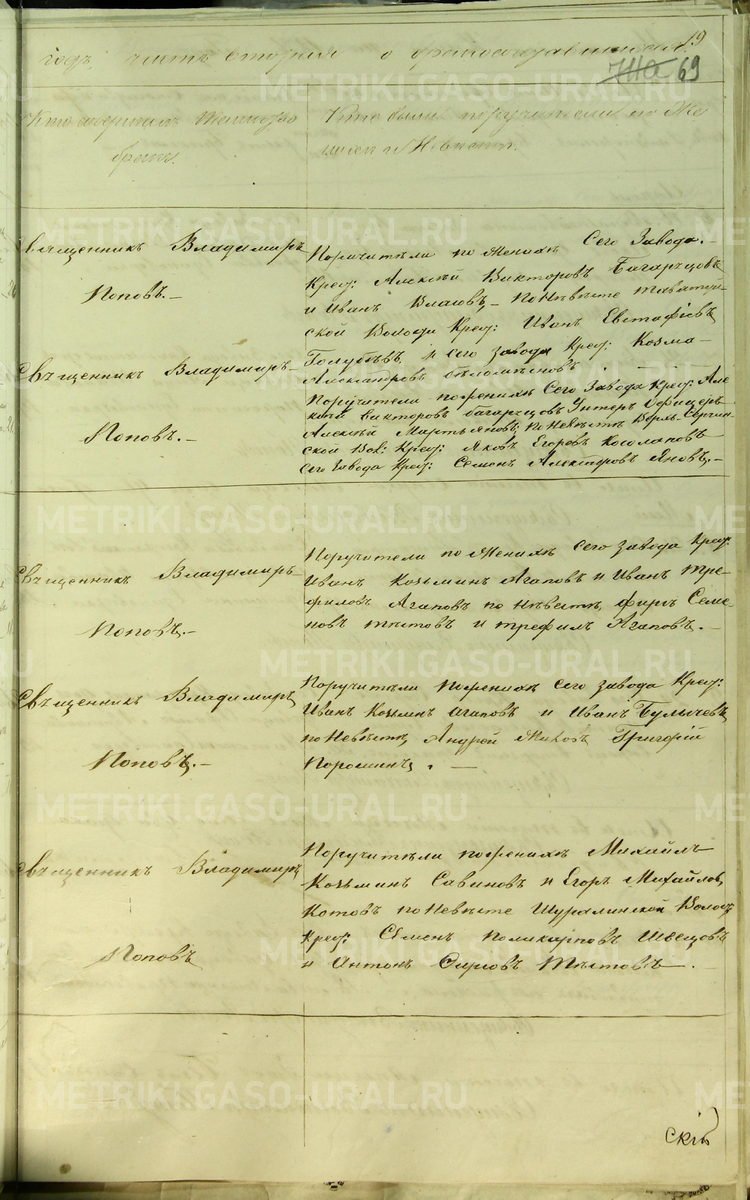 19
69
годъ, часть вторая о бракосочетавшихся
Кто совершалъ таинство
бракъ.
Кто были поручители по Же
нихѣ и Невѣстѣ.
METRIKI.GASO-URAL.RU
Священникъ Владимиръ
Поповъ.–
Поручители по женихѣ Сего Завода.
Крес: Алексѣй Викторовъ Багарецовъ
и Иванъ Власовъ, – по Невѣсте
ской Волости Крес: Иванъ Евстафіевъ
и сего завода Крес: Козма
Александровъ
Свѣщенникъ Владимиръ–
Поповъ.–
Поручители по женихѣ Сего Завода Крес: Але
ксѣй викторовъ багарецовъ Унтеръ Офицеръ
Алексѣй Мартьяновъ, по Невѣстѣ
ской Вол: Крес: Яковъ Егоровъ Косолаповъ
Сего Завода Крес: Семенъ Яновъ,–
Свѣщенникъ Владимиръ–
Поповъ.–
Поручители по женихѣ сего завода Крес:
Иванъ Козьминъ Агаповъ и Иванъ Тре-
филовъ Агаповъ по нѣвестѣ, фирсъ Семе-
новъ тѣтовъ и трефилъ Агаповъ. –
Свѣщенникъ Владимиръ
Поповъ.–
Поручители по женихѣ сего завода Крес:
Иванъ Козьминъ агаповъ и Иванъ Булычевъ
по Невѣстѣ, Андрей Григорій
Пороминъ, . –
Свѣщенникъ Владимиръ
Поповъ
Поручители по женихѣ Михайлъ
Козьминъ Савиновъ и Егоръ Михайловъ
Котовъ по Невѣсте Шуралинской Волост
Крес: Семенъ Поликарповъ Швецовъ
и Антонъ Тѣтовъ –.
скій